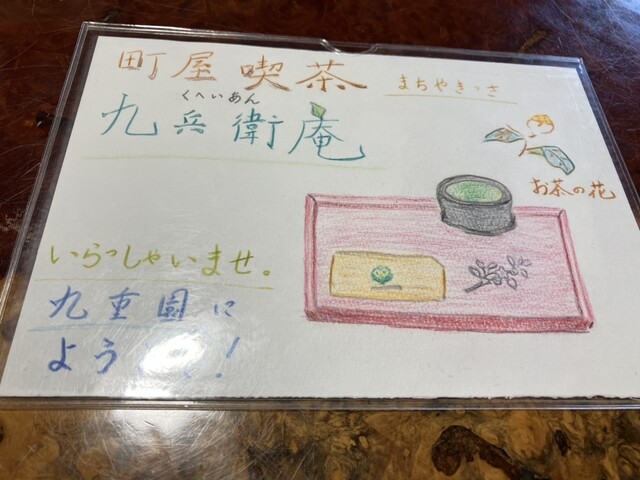 町屋喫茶 まちやきっさ
くへいあん
九兵衛庵
お茶の花
いらっしゃいませ。
九重園に
よう！